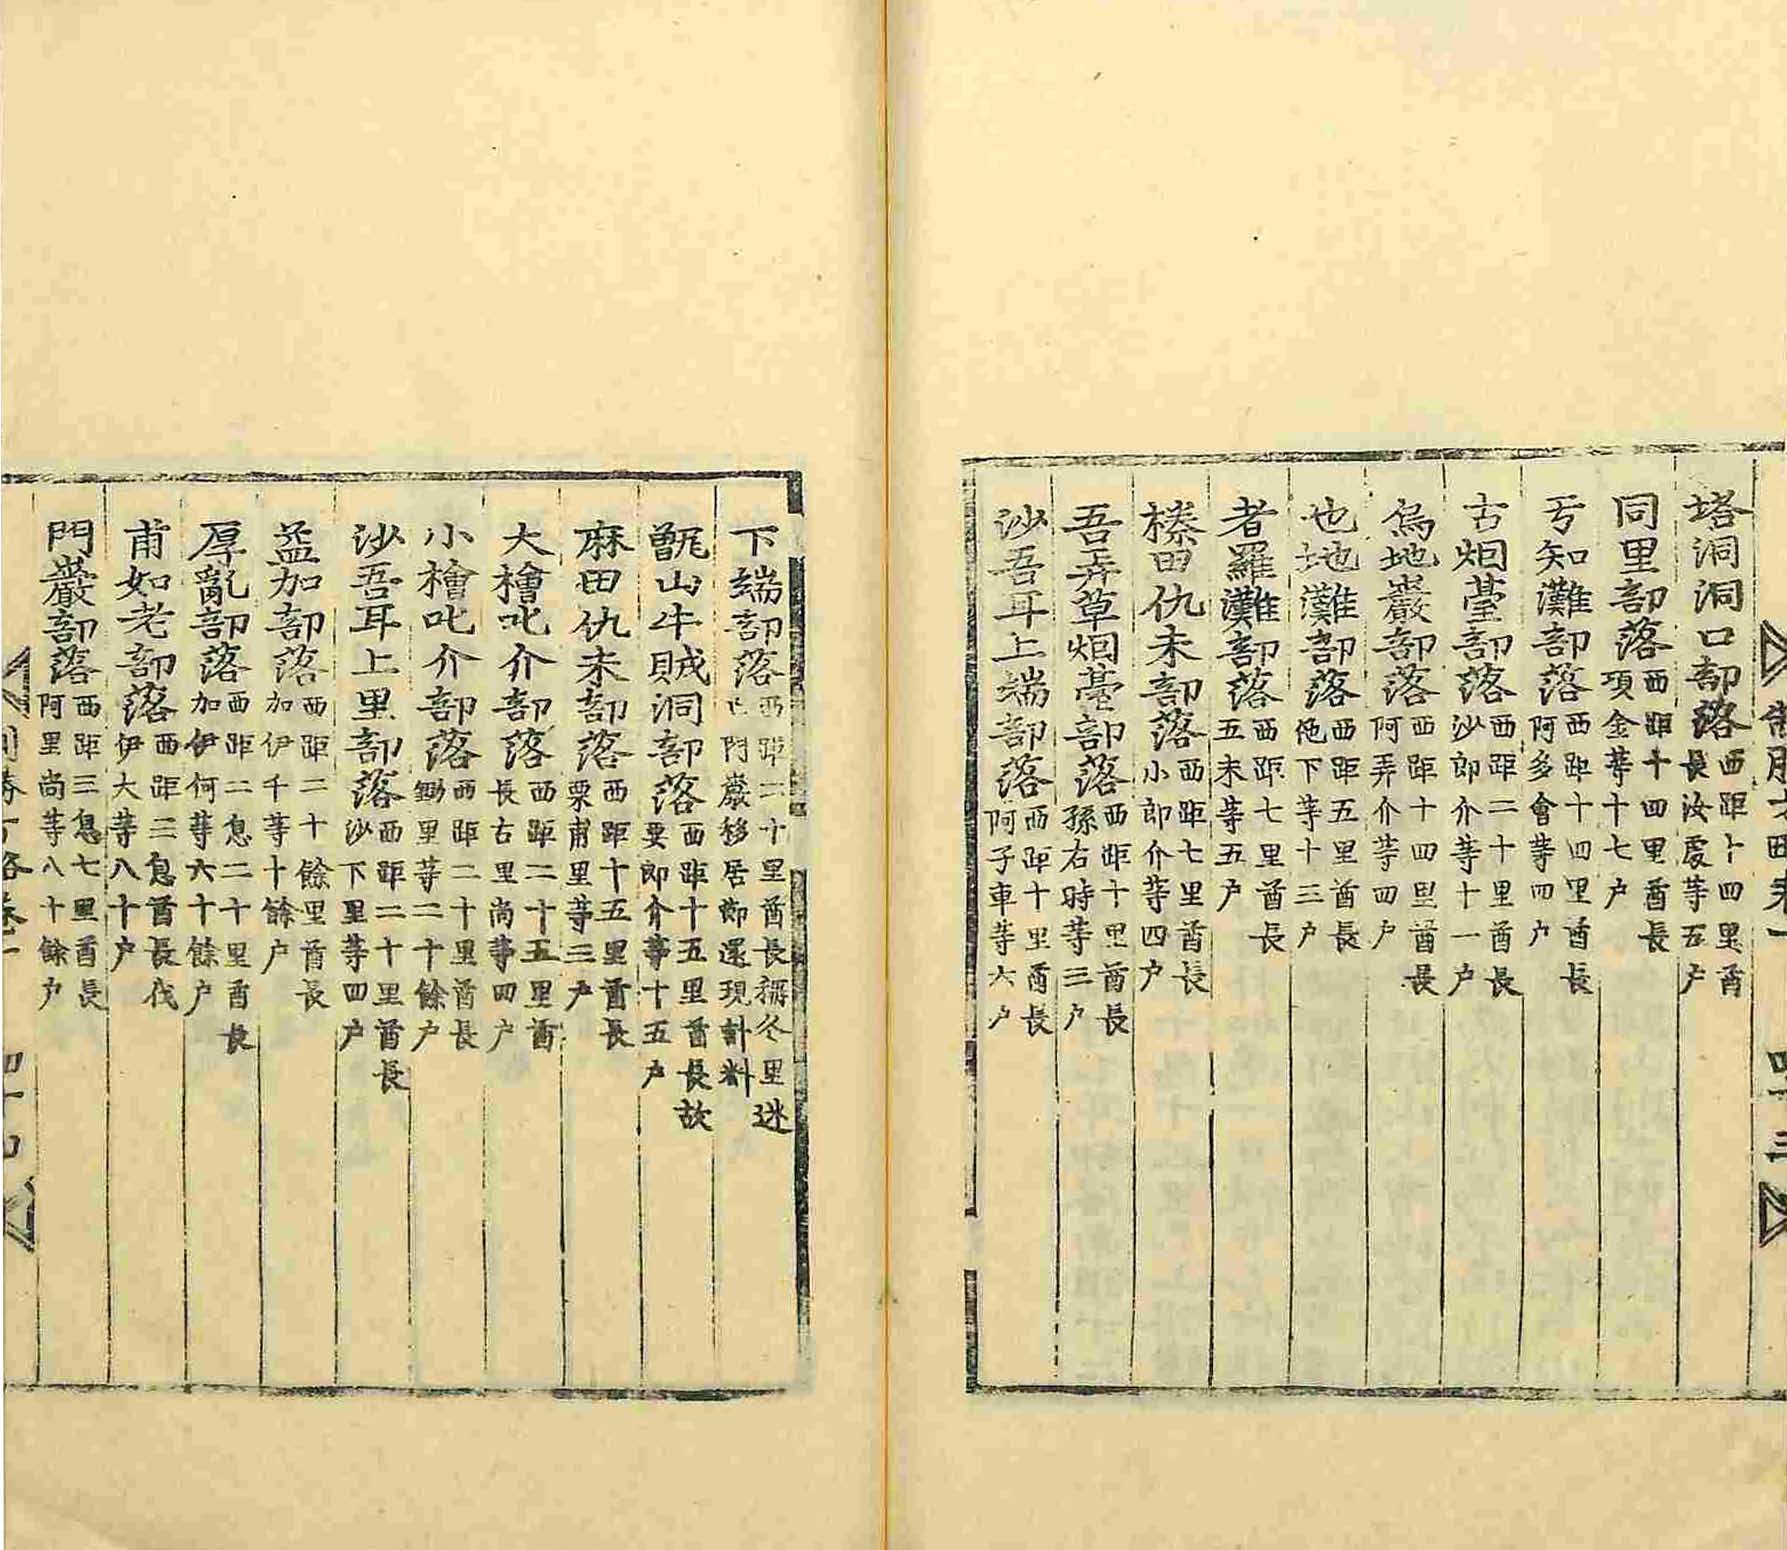 塔洞洞口部落西距十四里酋長汝處等五户
同里部落西距十四里酋長項金等十七户
亐知灘部落西距十四里酋長阿多會等四户
古烟臺部落西距二十里酋長沙郎介等十一户
烏地巖部落西距十四里酋長阿弄介等四户
也地灘部落西距五里酋長他下等十三户
者羅灘部落西距七里酋長五未等五户
榛田仇未部落西距七里酋長小郎介等四户
吾弄草烟臺部落西距十里酋長孫右時等三户
沙吾耳上端部落西距十里酋長阿子車等六户
下端部落西距二十里酋長稱冬里迷門巖移居卽還現計料
甑山牛賊洞部落西距十五里酋長故要郎介等十五户
麻田仇未部落西距十五里酋長栗甫里等三户
大檜叱介部落西距二十五里酋長古里尚等四户
小檜叱介部落西距二十里酋長鋤里等二十餘户
沙吾耳上里部落西距二十里酋長沙下里等四户
孟加部落西距二十餘里酋長加伊千等十餘户
厚亂部落西距二息二十里酋長加伊何等六十餘户
甫如老部落西距三息酋長伐伊大等八十户
門巖部落西距三息七里酋長阿里尚等八十餘户